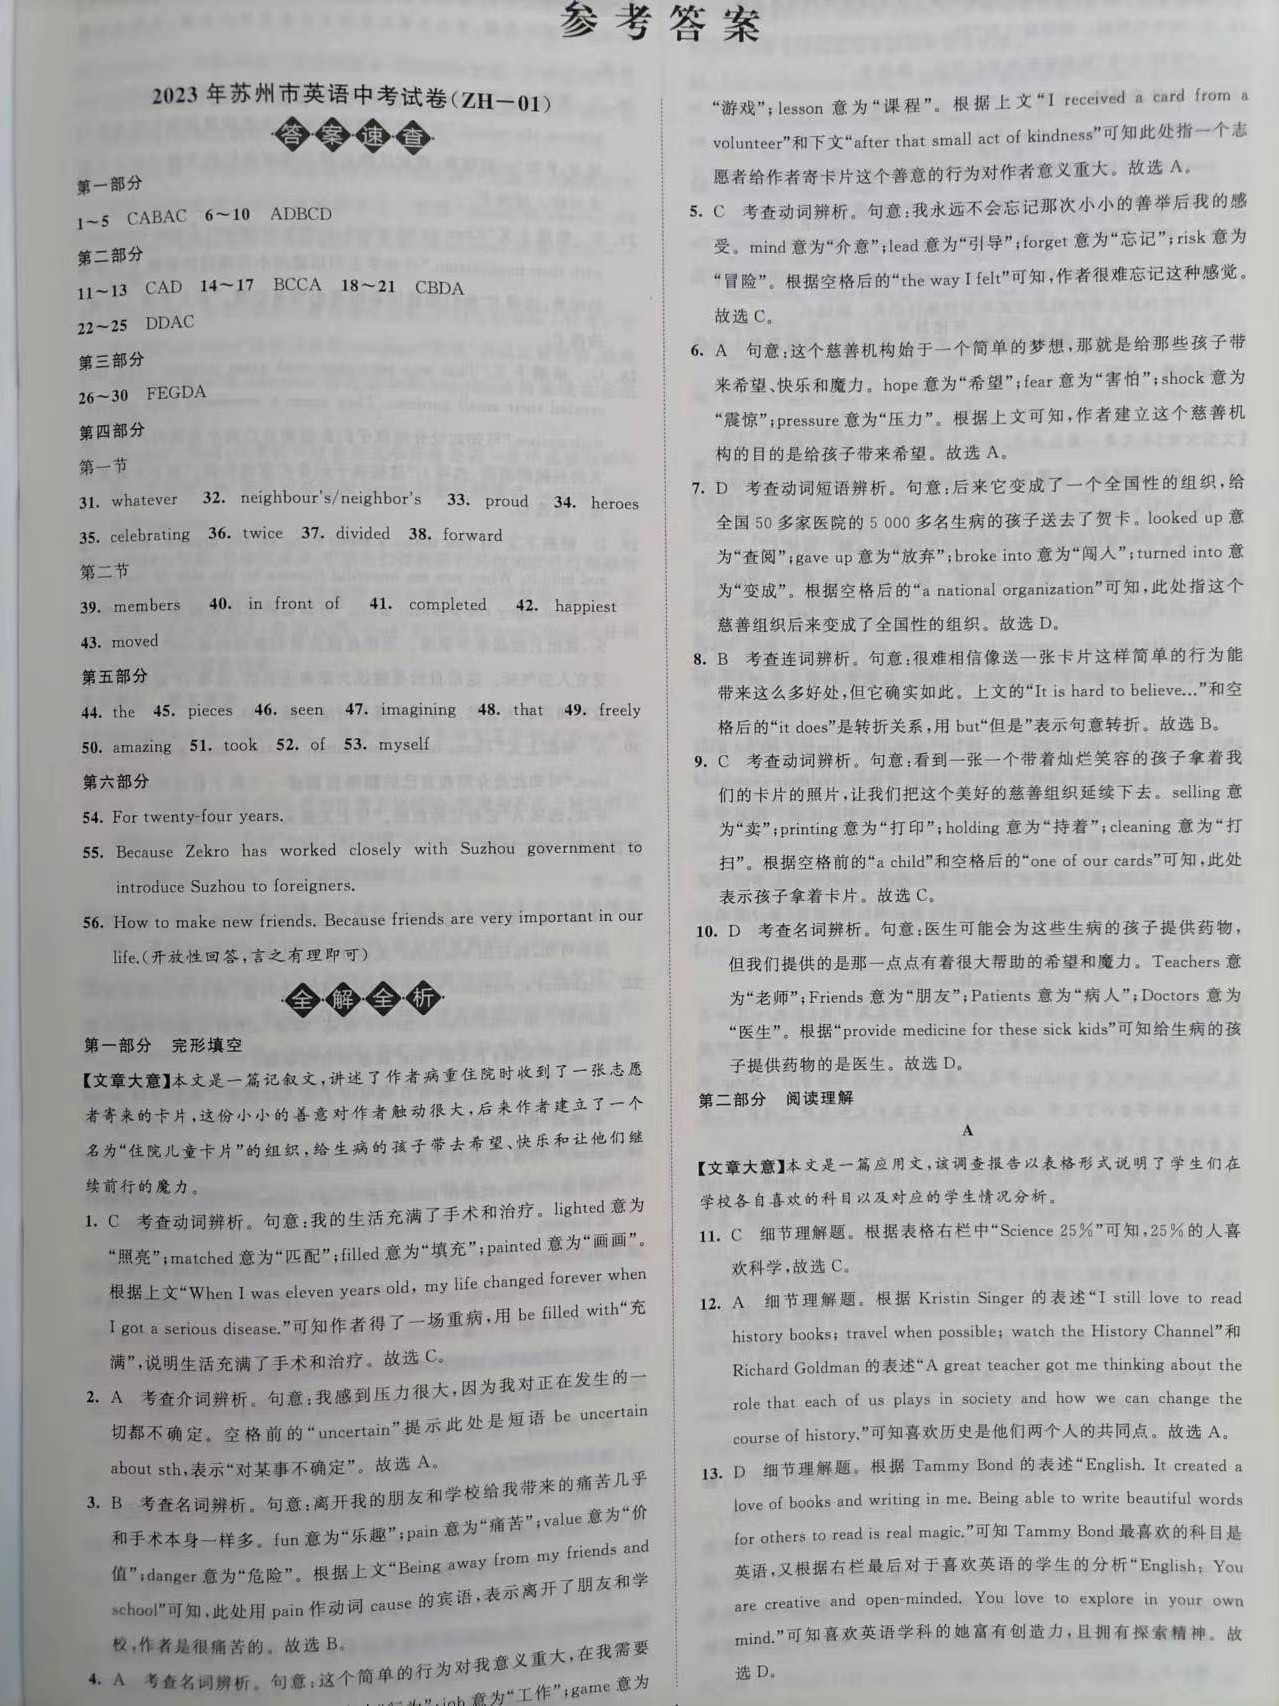 参考答案
2023年苏州市英语中考试卷(ZH-01)
答案速查
第一部分
1~5 CABAC 6~10 ADBCD
第二部分
11~13 CAD 14~17 BCCA 18~21 CBDA
22~25 DDAC
第三部分
26~30 FEGDA
第四部分
第一节
31. whatever 32. neighbour's/neighbor's 33. proud 34. heroes
35. celebrating 36. twice 37. divided 38. forward
第二节
39. members 40. in front of 41. completed 42. happiest
43. moved
第五部分
44. the 45. pieces 46. seen 47. imagining 48. that 49. freely
50. amazing 51. took 52. of 53. myself
第六部分
54. For twenty-four years.
55. Because Zekro has worked closely with Suzhou government to
introduce Suzhou to foreigners.
56. How to make new friends. Because friends are very important in our
life.(开放性回答,言之有理即可)
全解全析
第一部分 完形填空
【文章大意】本文是一篇记叙文,讲述了作者病重住院时收到了一张志愿
者寄来的卡片,这份小小的善意对作者触动很大,后来作者建立了一个
名为“住院儿童卡片”的组织,给生病的孩子带去希望、快乐和让他们继
续前行的魔力。
1. C 考查动词辨析。句意:我的生活充满了手术和治疗。lighted 意为
“照亮”;matched 意为“匹配”;filled 意为“填充”;painted 意为“画画”。
根据上文“When I was eleven years old, my life changed forever when
I got a serious disease.”可知作者得了一场重病,用 be filled with“充
满”,说明生活充满了手术和治疗。故选 C。
2. A 考查介词辨析。句意:我感到压力很大,因为我对正在发生的一
切都不确定。空格前的“uncertain”提示此处是短语 be uncertain
about sth,表示“对某事不确定”。故选 A。
3. B 考查名词辨析。句意:离开我的朋友和学校给我带来的痛苦几乎
和手术本身一样多。fun 意为“乐趣”;pain 意为“痛苦”;value 意为“价
值”;danger 意为“危险”。根据上文“Being away from my friends and
school”可知,此处用 pain 作动词 cause 的宾语,表示离开了朋友和学
校,作者是很痛苦的。故选 B。
4. A 考查名词辨析。句意:这个简单的行为对我意义重大,在我需要
“行为”;job 意为“工作”;game 意为
“游戏”;lesson 意为“课程”。根据上文“I received a card from a
volunteer”和下文“after that small act of kindness”可知此处指一个志
愿者给作者寄卡片这个善意的行为对作者意义重大。故选 A。
5. C 考查动词辨析。句意:我永远不会忘记那次小小的善举后我的感
受。mind 意为“介意”;lead 意为“引导”;forget 意为“忘记”;risk 意为
“冒险”。根据空格后的“the way I felt”可知,作者很难忘记这种感觉。
故选 C。
6. A 句意:这个慈善机构始于一个简单的梦想,那就是给那些孩子带
来希望、快乐和魔力。hope 意为“希望”;fear 意为“害怕”;shock 意为
“震惊”;pressure 意为“压力”。根据上文可知,作者建立这个慈善机
构的目的是给孩子带来希望。故选 A。
7. D 考查动词短语辨析。句意:后来它变成了一个全国性的组织,给
全国 50 多家医院的 5 000 多名生病的孩子送去了贺卡。looked up 意
为“查阅”;gave up 意为“放弃”;broke into 意为“闯人”;turned into 意
为“变成”。根据空格后的“a national organization”可知,此处指这个
慈善组织后来变成了全国性的组织。故选 D。
8. B 考查连词辨析。句意:很难相信像送一张卡片这样简单的行为能
带来这么多好处,但它确实如此。上文的“It is hard to believe...”和空
格后的“it does”是转折关系,用 but“但是”表示句意转折。故选 B。
9. C 考查动词辨析。句意:看到一张一个带着灿烂笑容的孩子拿着我
们的卡片的照片,让我们把这个美好的慈善组织延续下去。selling 意
为“卖”;printing 意为“打印”;holding 意为“持着”;cleaning 意为“打
扫”。根据空格前的“a child”和空格后的“one of our cards”可知,此处
表示孩子拿着卡片。故选 C。
10. D 考查名词辨析。句意:医生可能会为这些生病的孩子提供药物,
但我们提供的是那一点点有着很大帮助的希望和魔力。Teachers 意
为“老师”;Friends 意为“朋友”;Patients 意为“病人”;Doctors 意为
“医生”。根据“provide medicine for these sick kids”可知给生病的孩
子提供药物的是医生。故选 D。
第二部分 阅读理解
A
【文章大意】本文是一篇应用文,该调查报告以表格形式说明了学生们在
学校各自喜欢的科目以及对应的学生情况分析。
11. C 细节理解题。根据表格右栏中“Science 25%”可知,25%的人喜
欢科学,故选 C。
12. A 细节理解题。根据 Kristin Singer 的表述“I still love to read
history books; travel when possible; watch the History Channel”和
Richard Goldman 的表述“A great teacher got me thinking about the
role that each of us plays in society and how we can change the
course of history.”可知喜欢历史是他们两个人的共同点。故选 A。
13. D 细节理解题。根据 Tammy Bond 的表述“English. It created a
love of books and writing in me. Being able to write beautiful words
for others to read is real magic.”可知 Tammy Bond 最喜欢的科目是
英语,又根据右栏最后对于喜欢英语的学生的分析“English: You
are creative and open-minded. You love to explore in your own
mind.”可知喜欢英语学科的她富有创造力,且拥有探索精神。故
选 D。